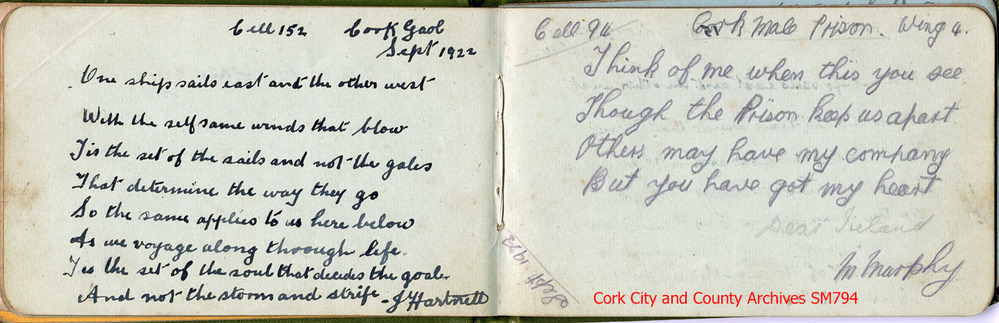 Cell 152 Cork Gaol
Sept 1922
One ship sails east and the other west
With the self same winds that blow
Tis the set of the sails and not the gales
That determine the way they go
So the same applies to us here below
As we voyage along through life.
Tis the set of the soul that decides the goal
And not the storm and strife - J Hartnett
Cell 94 Cork Male Prison. Wing 4.
Think of me when this you see
Though the Prison keep us apart.
Others may have my company
But you have got my heart
Dear Ireland
M Murphy
Sept 1922
Cork City and County Archives SM794